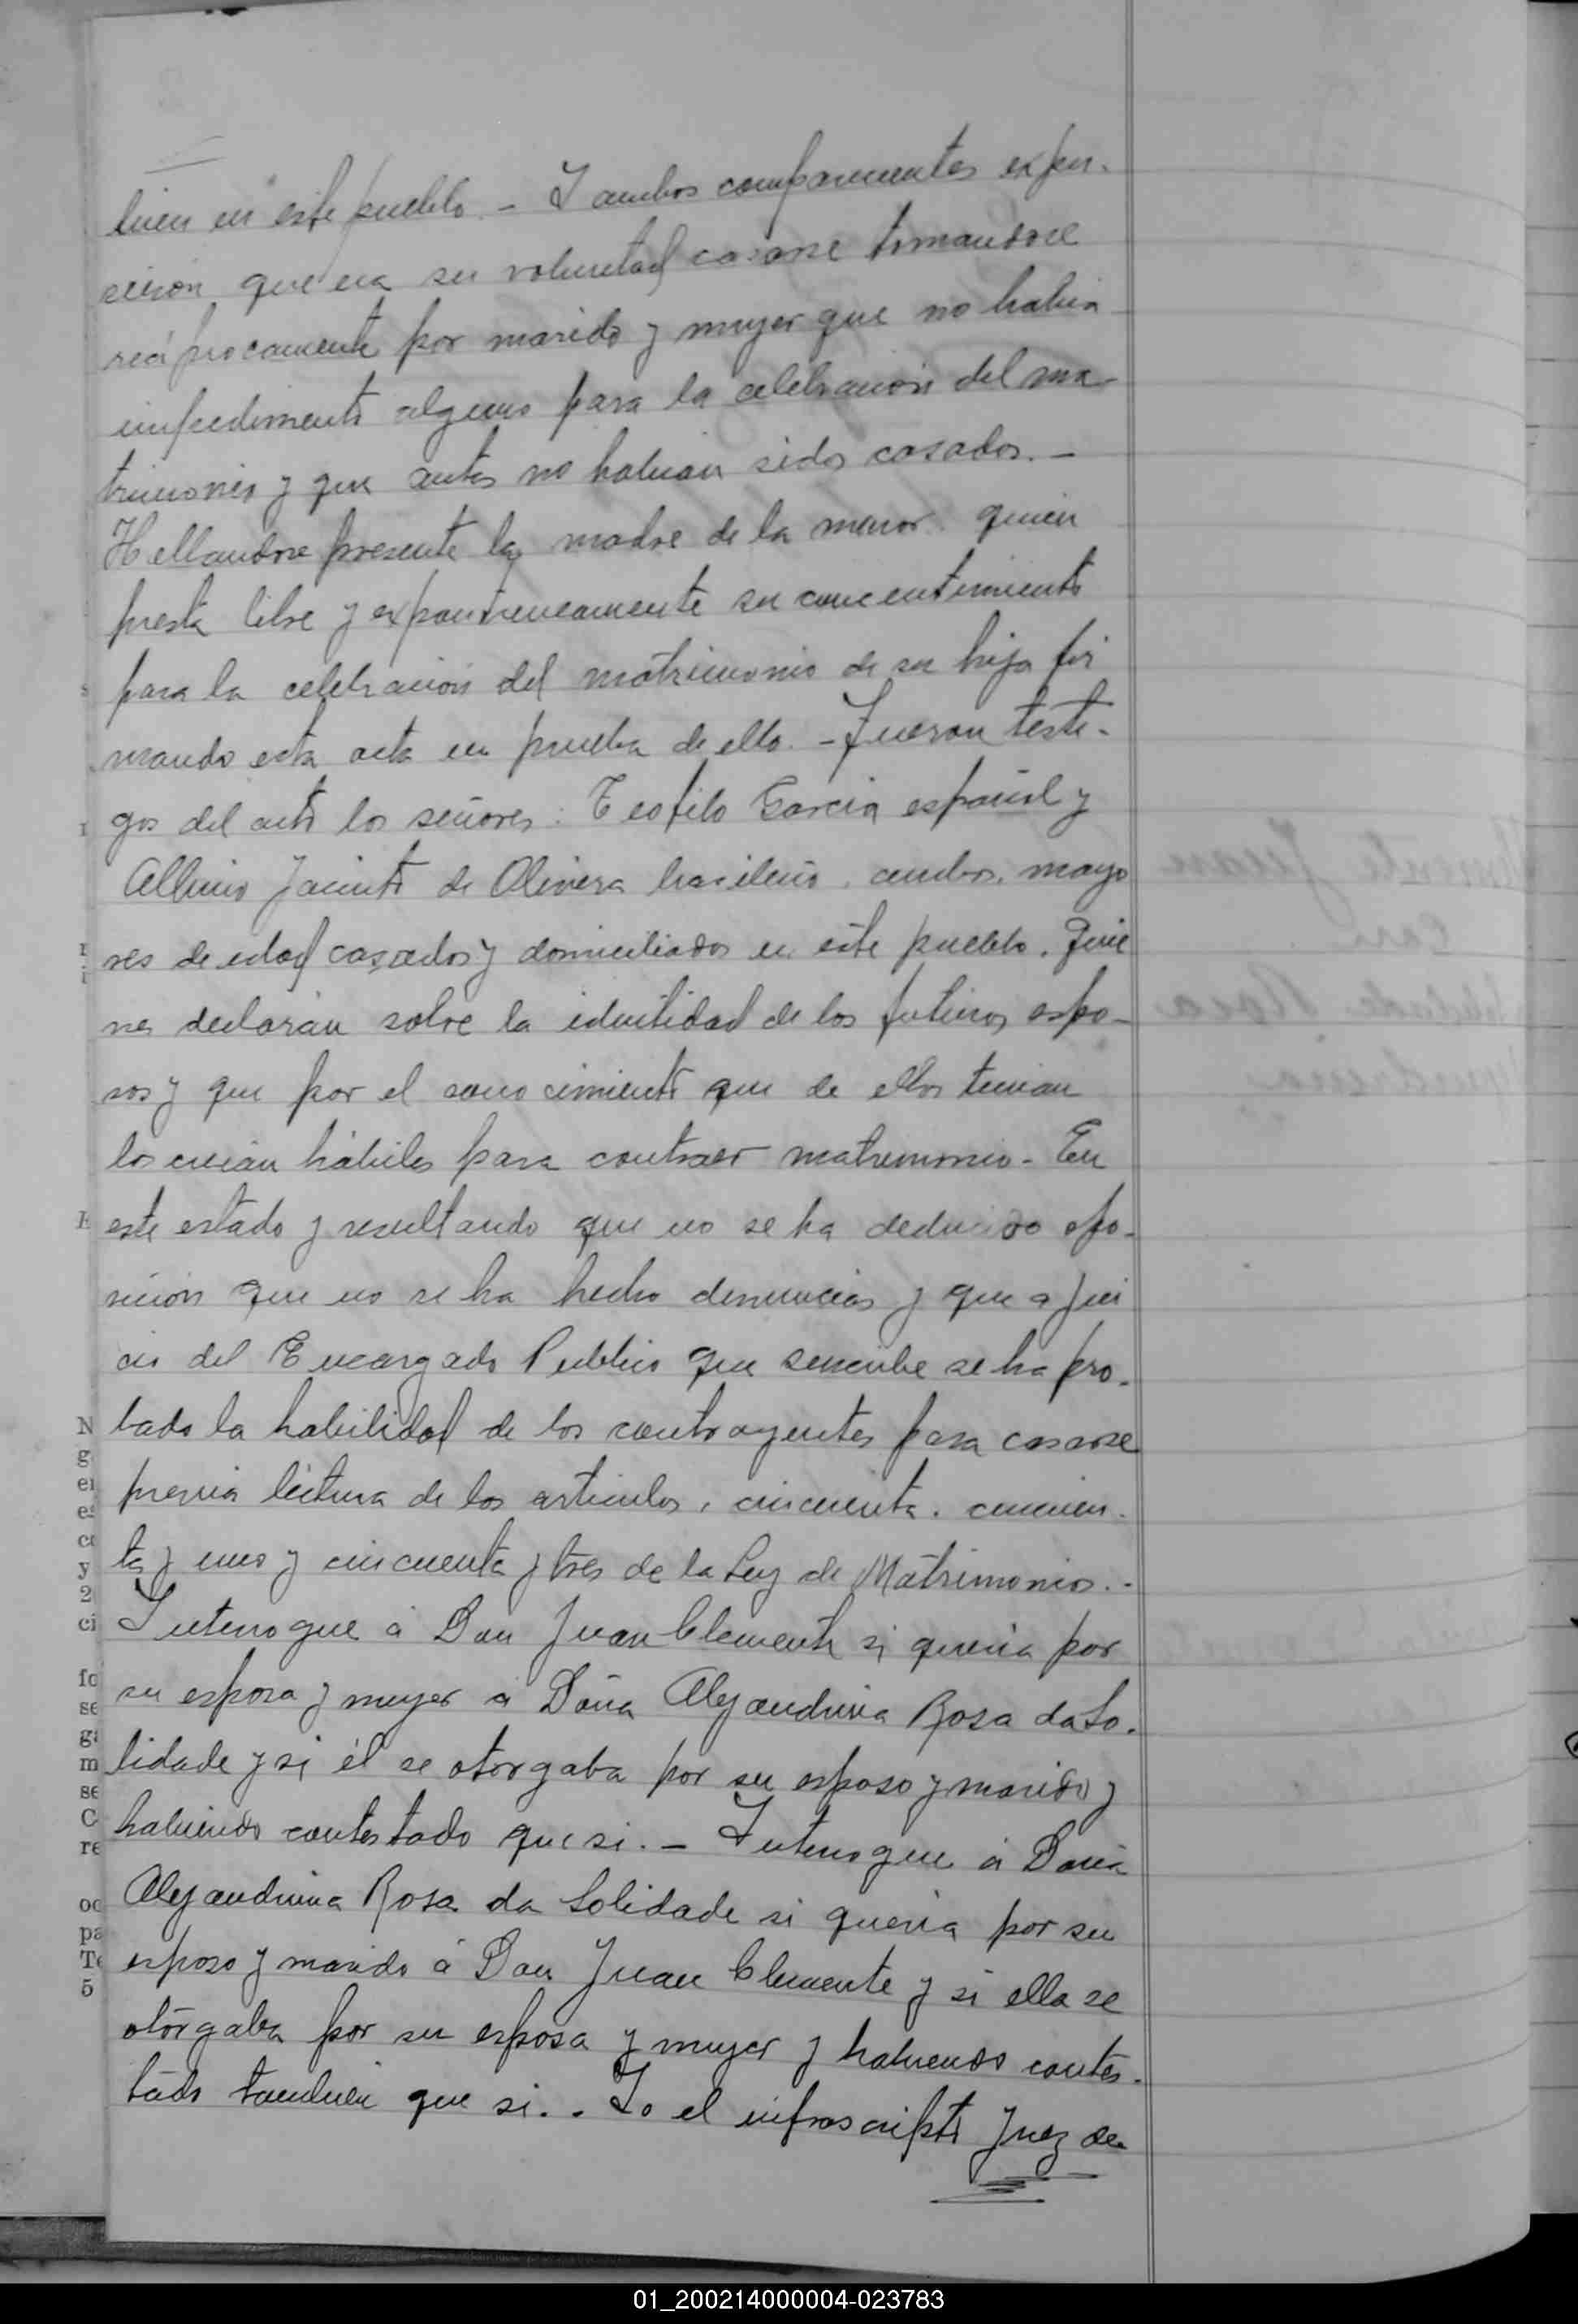 bien en este pueblo. - I ambos comparecientes expu-
sieron que era su voluntad casarse tomandose
reciprocamente por marido y mujer que no habia
impedimento alguno para la celebracion del ma-
trimonio y que antes no habian sidos casados. -
Hellandose presente la madre de la menor. quien
presta libre y expontneneamente su concentimiento
para la celebracion del matrimonio de su hija fir
mando esta acta en prueba de ello. - Fueron testi-
gos del acto los señores: Teofilo Garcia español y
Albino Jacinto de Olivera brasileño, ambos, mayo
res de edad casados y domiciliados en este pueblo. Quie
nes declarán sobre la identidad de los futuros espo-
sos y que por el conocimiento que de ellos tenian
los creián hábiles para contraer matrimonio - En
este estado y resultando que no se ha deducido opo-
sicion que no se ha hecho denuncias y que a jui
cio del Encargado Publico que suscribe se ha pro-
bado la habilidad de los contrayentes para casarse
previa lectura de los articulos, cincuenta. cincuen-
ta y uno y cincuenta y tres de la Ley de Matrimonio. -
Interrogue á Don Juan Clemente si queria por
su esposa y mujer á Doña Alejandrina Rosa da So-
lidade y si él se otorgaba por su esposo y marido y
habiendo contestado que si. - Interrogue á Doña
Alejandrina Rosa da Solidade si queria por su
esposo y marido á Don Juan Clemente y si ella se
otorgaba por su esposa y mujer y habiendo contes-
tado tambien que si. - Io el infrascripto Juez de
N
g
y
2
ci
fo
se
m
se
C
re
oc
pa
Te
5
01_200214000004-023783